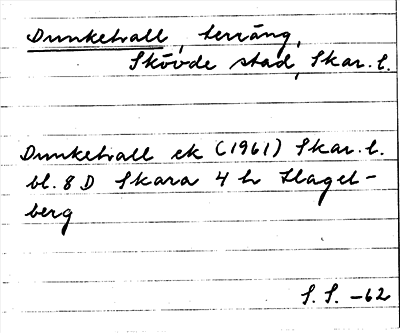 Dunketvall, terräng,
Skövde stad, Skar. l.
Dunketvall ek (1961) Skar. l.
bl. 8 D Skara 4 h Hagel-
berg
S. S. -62